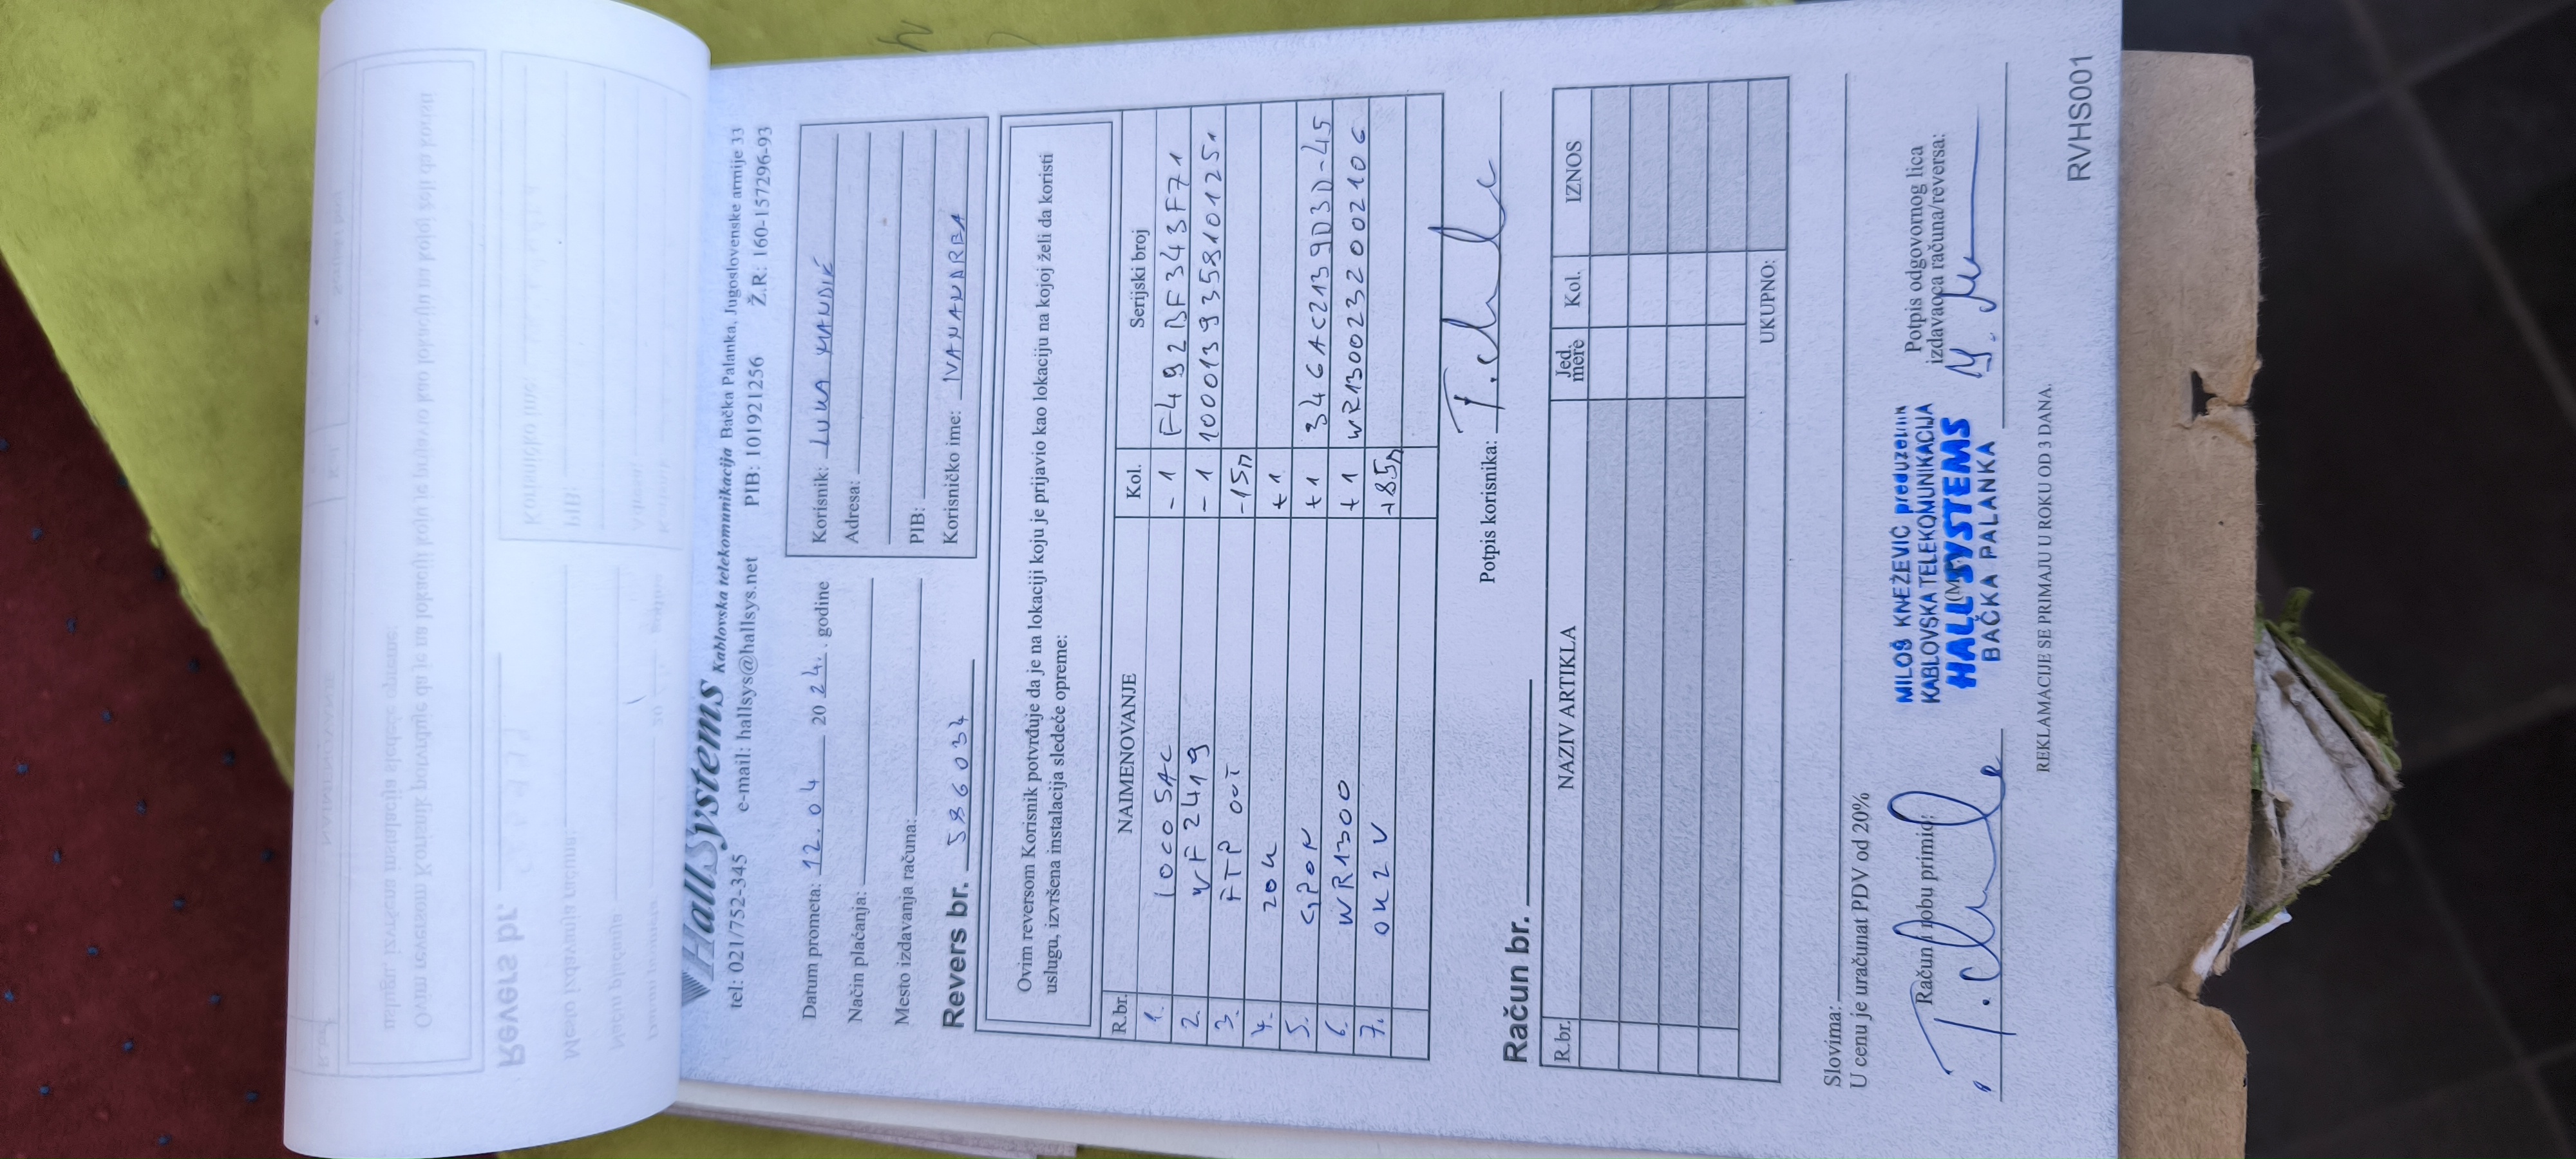 HallSystems Kablovska telekomunikacija Bačka Palanka, Jugoslovenske armije 33
tel: 021/752-345 e-mail: hallsys@hallsys.net PIB: 101921256 Ž.R: 160-157296-93
Datum prometa: 12.04 2024. . godine
Način plaćanja:
Mesto izdavanja računa:
Revers br. 586034
Korisnik: LUKA MANDIĆ
Adresa:
PIB:
Korisničko ime: IVANANARBA
Ovim reversom Korisnik potvrđuje da je na lokaciji koju je prijavio kao lokaciju na kojoj želi da koristi
uslugu, izvršena instalacija sledeće opreme:
R.br. NAIMENOVANJE Kol. Serijski broj
1. LOCO 5AC -1 F492BF343F71
2. WF2419 -1 1000139358101251
3. FTP OUT -15m
4. ZOK +1
5. GPON +1 346AC2139D3D-45
6. WR1300 +1 WR13002320002106
7. OK2V +85m
Potpis korisnika:
Račun br.
R.br. NAZIV ARTIKLA Jed. mere Kol. IZNOS
UKUPNO:
Slovima:
U cenu je uračunat PDV od 20%
Račun i robu primio:
MILOŠ KNEŽEVIĆ preduzetnik
KABLOVSKA TELEKOMUNIKACIJA
HALL SYSTEMS
BAČKA PALANKA
Potpis odgovornog lica
izdavaoca računa/reversa:
REKLAMACIJE SE PRIMAJU U ROKU OD 3 DANA.
RVHS001